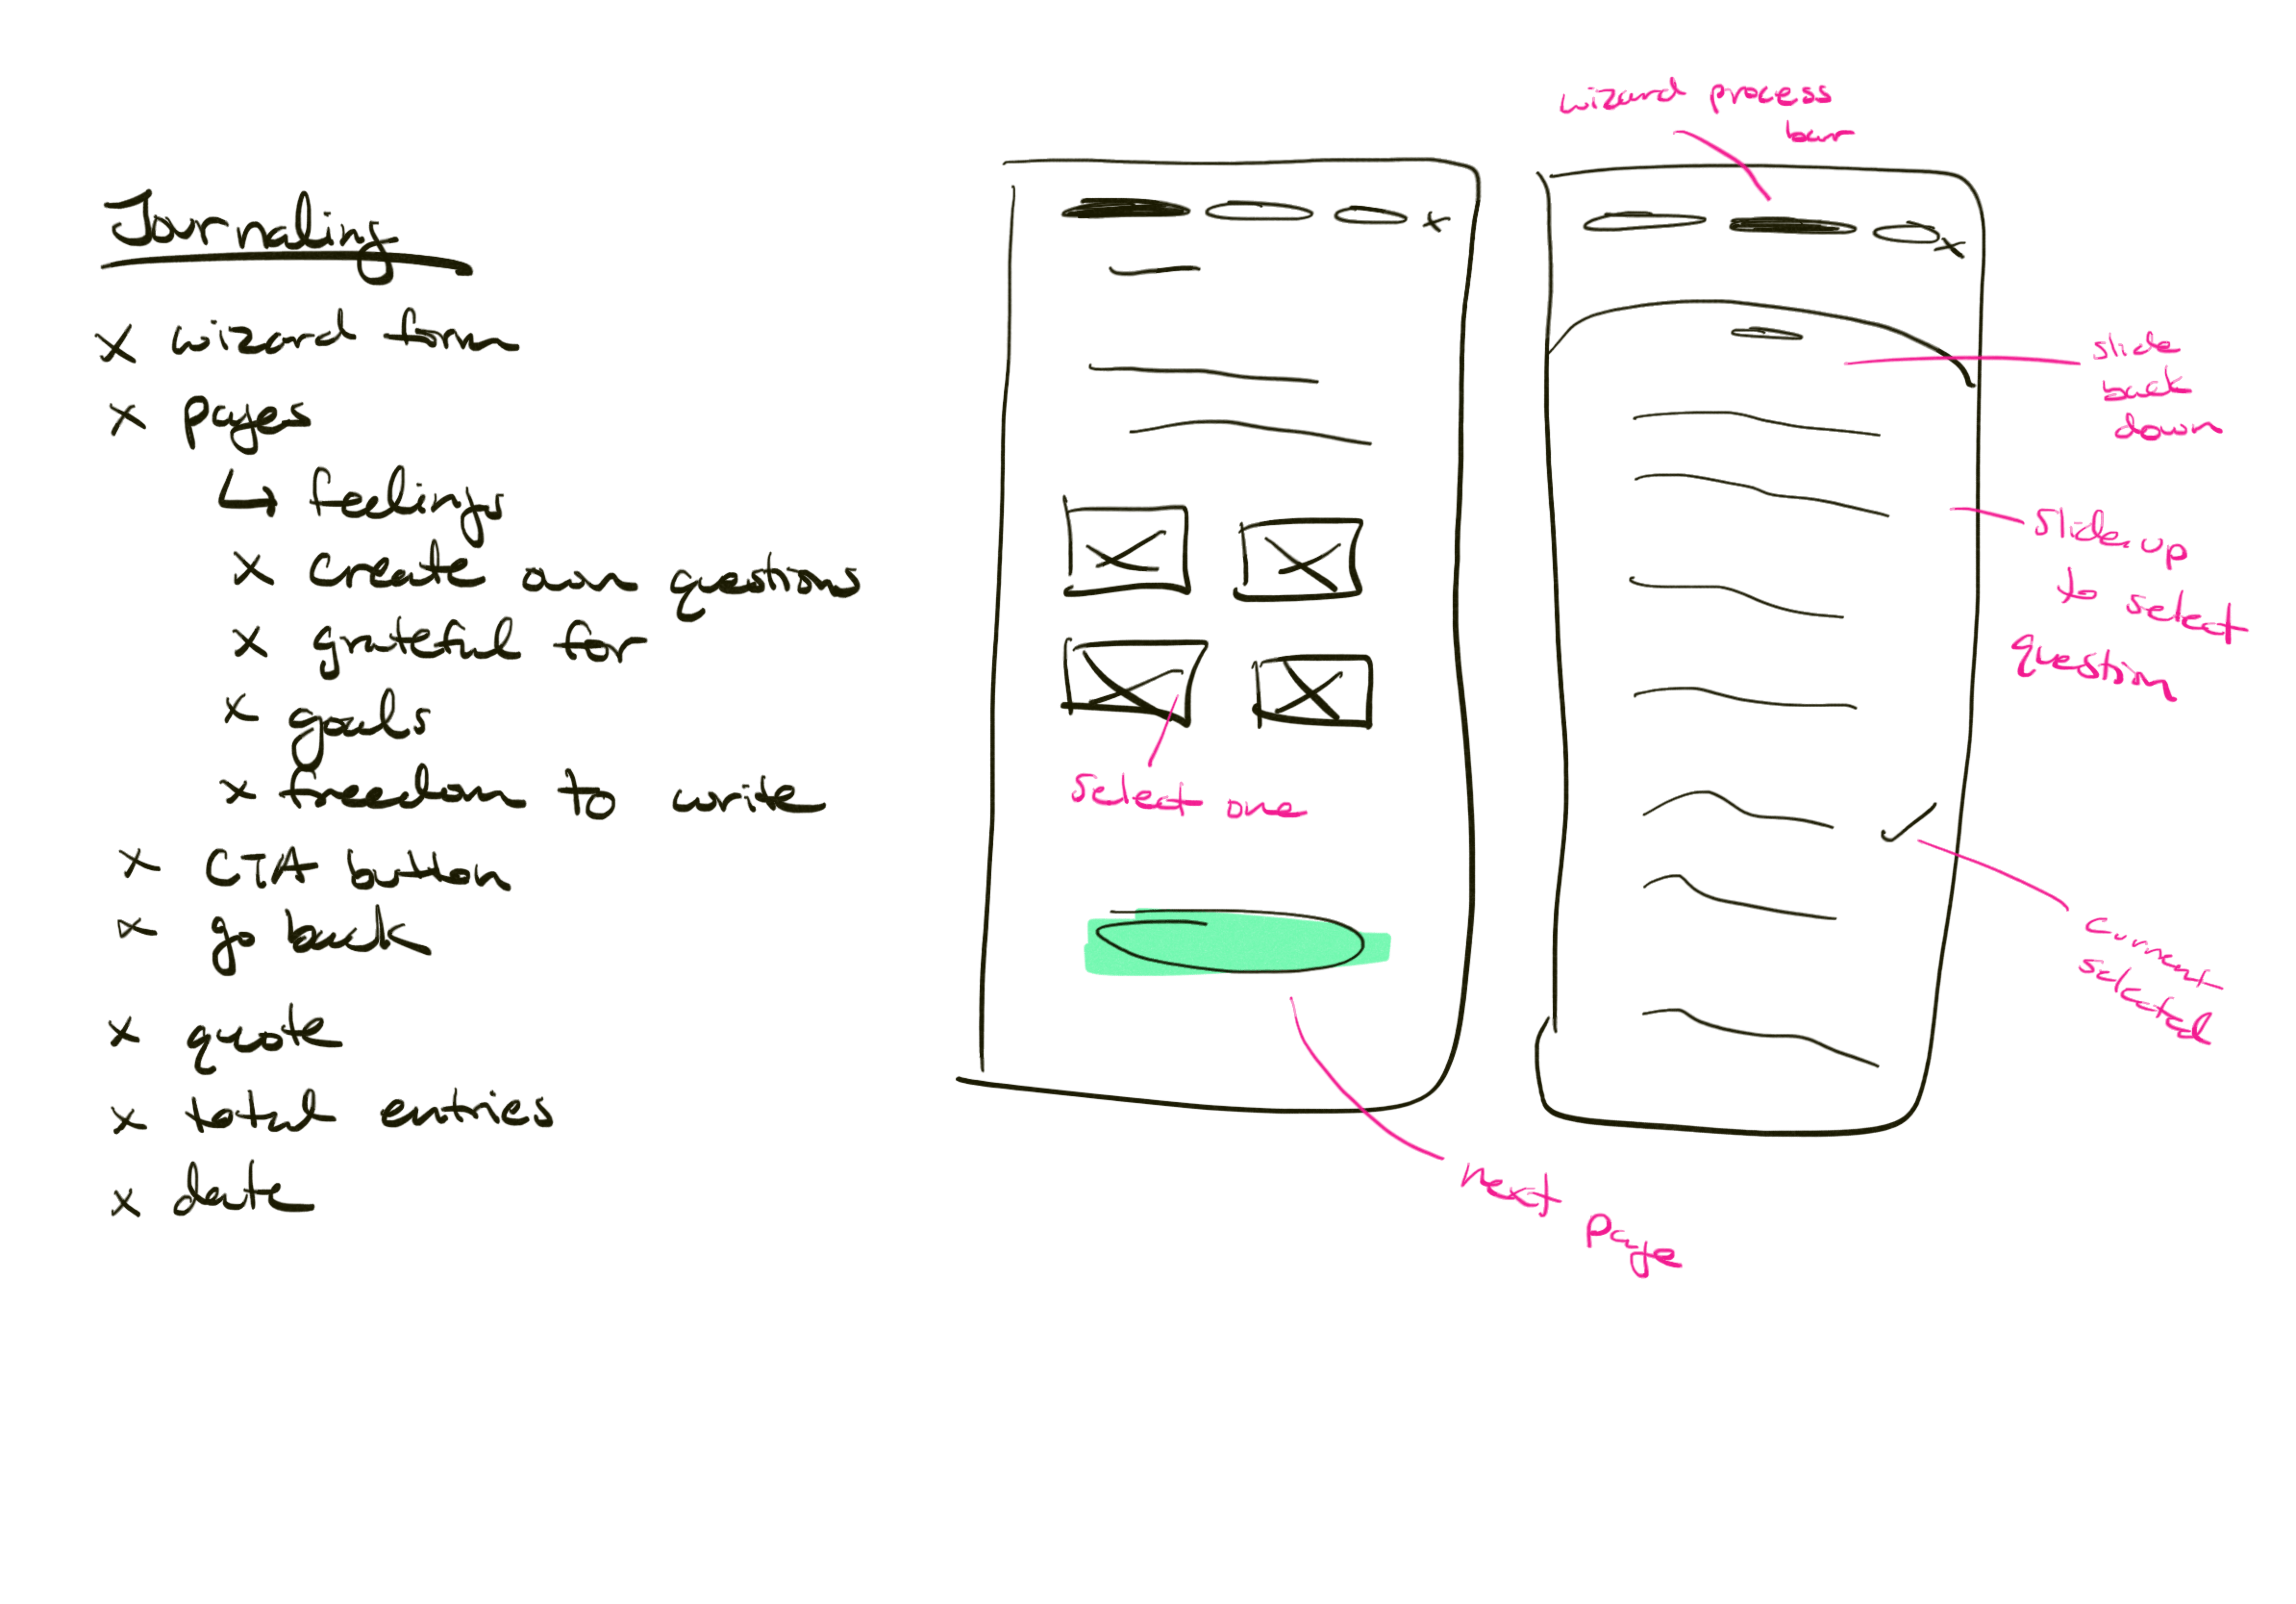 Journaling
x wizard form
x pages
↳ feelings
x create own questions
x grateful for
x goals
x freedom to write
x CTA button
x go back
x quote
x total entries
x date
select one
next page
wizard process
bar
slide
back
down
slide up
to select
question
current
selected